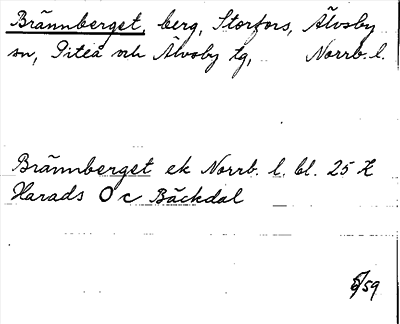 Brännberget, berg, Storfors, Älvsby
sn, Piteå och Älvsby tg, Norrb. l.
Brännberget ek Norrb. l. bl. 25 K
Harads O c Bäckdal
5/59